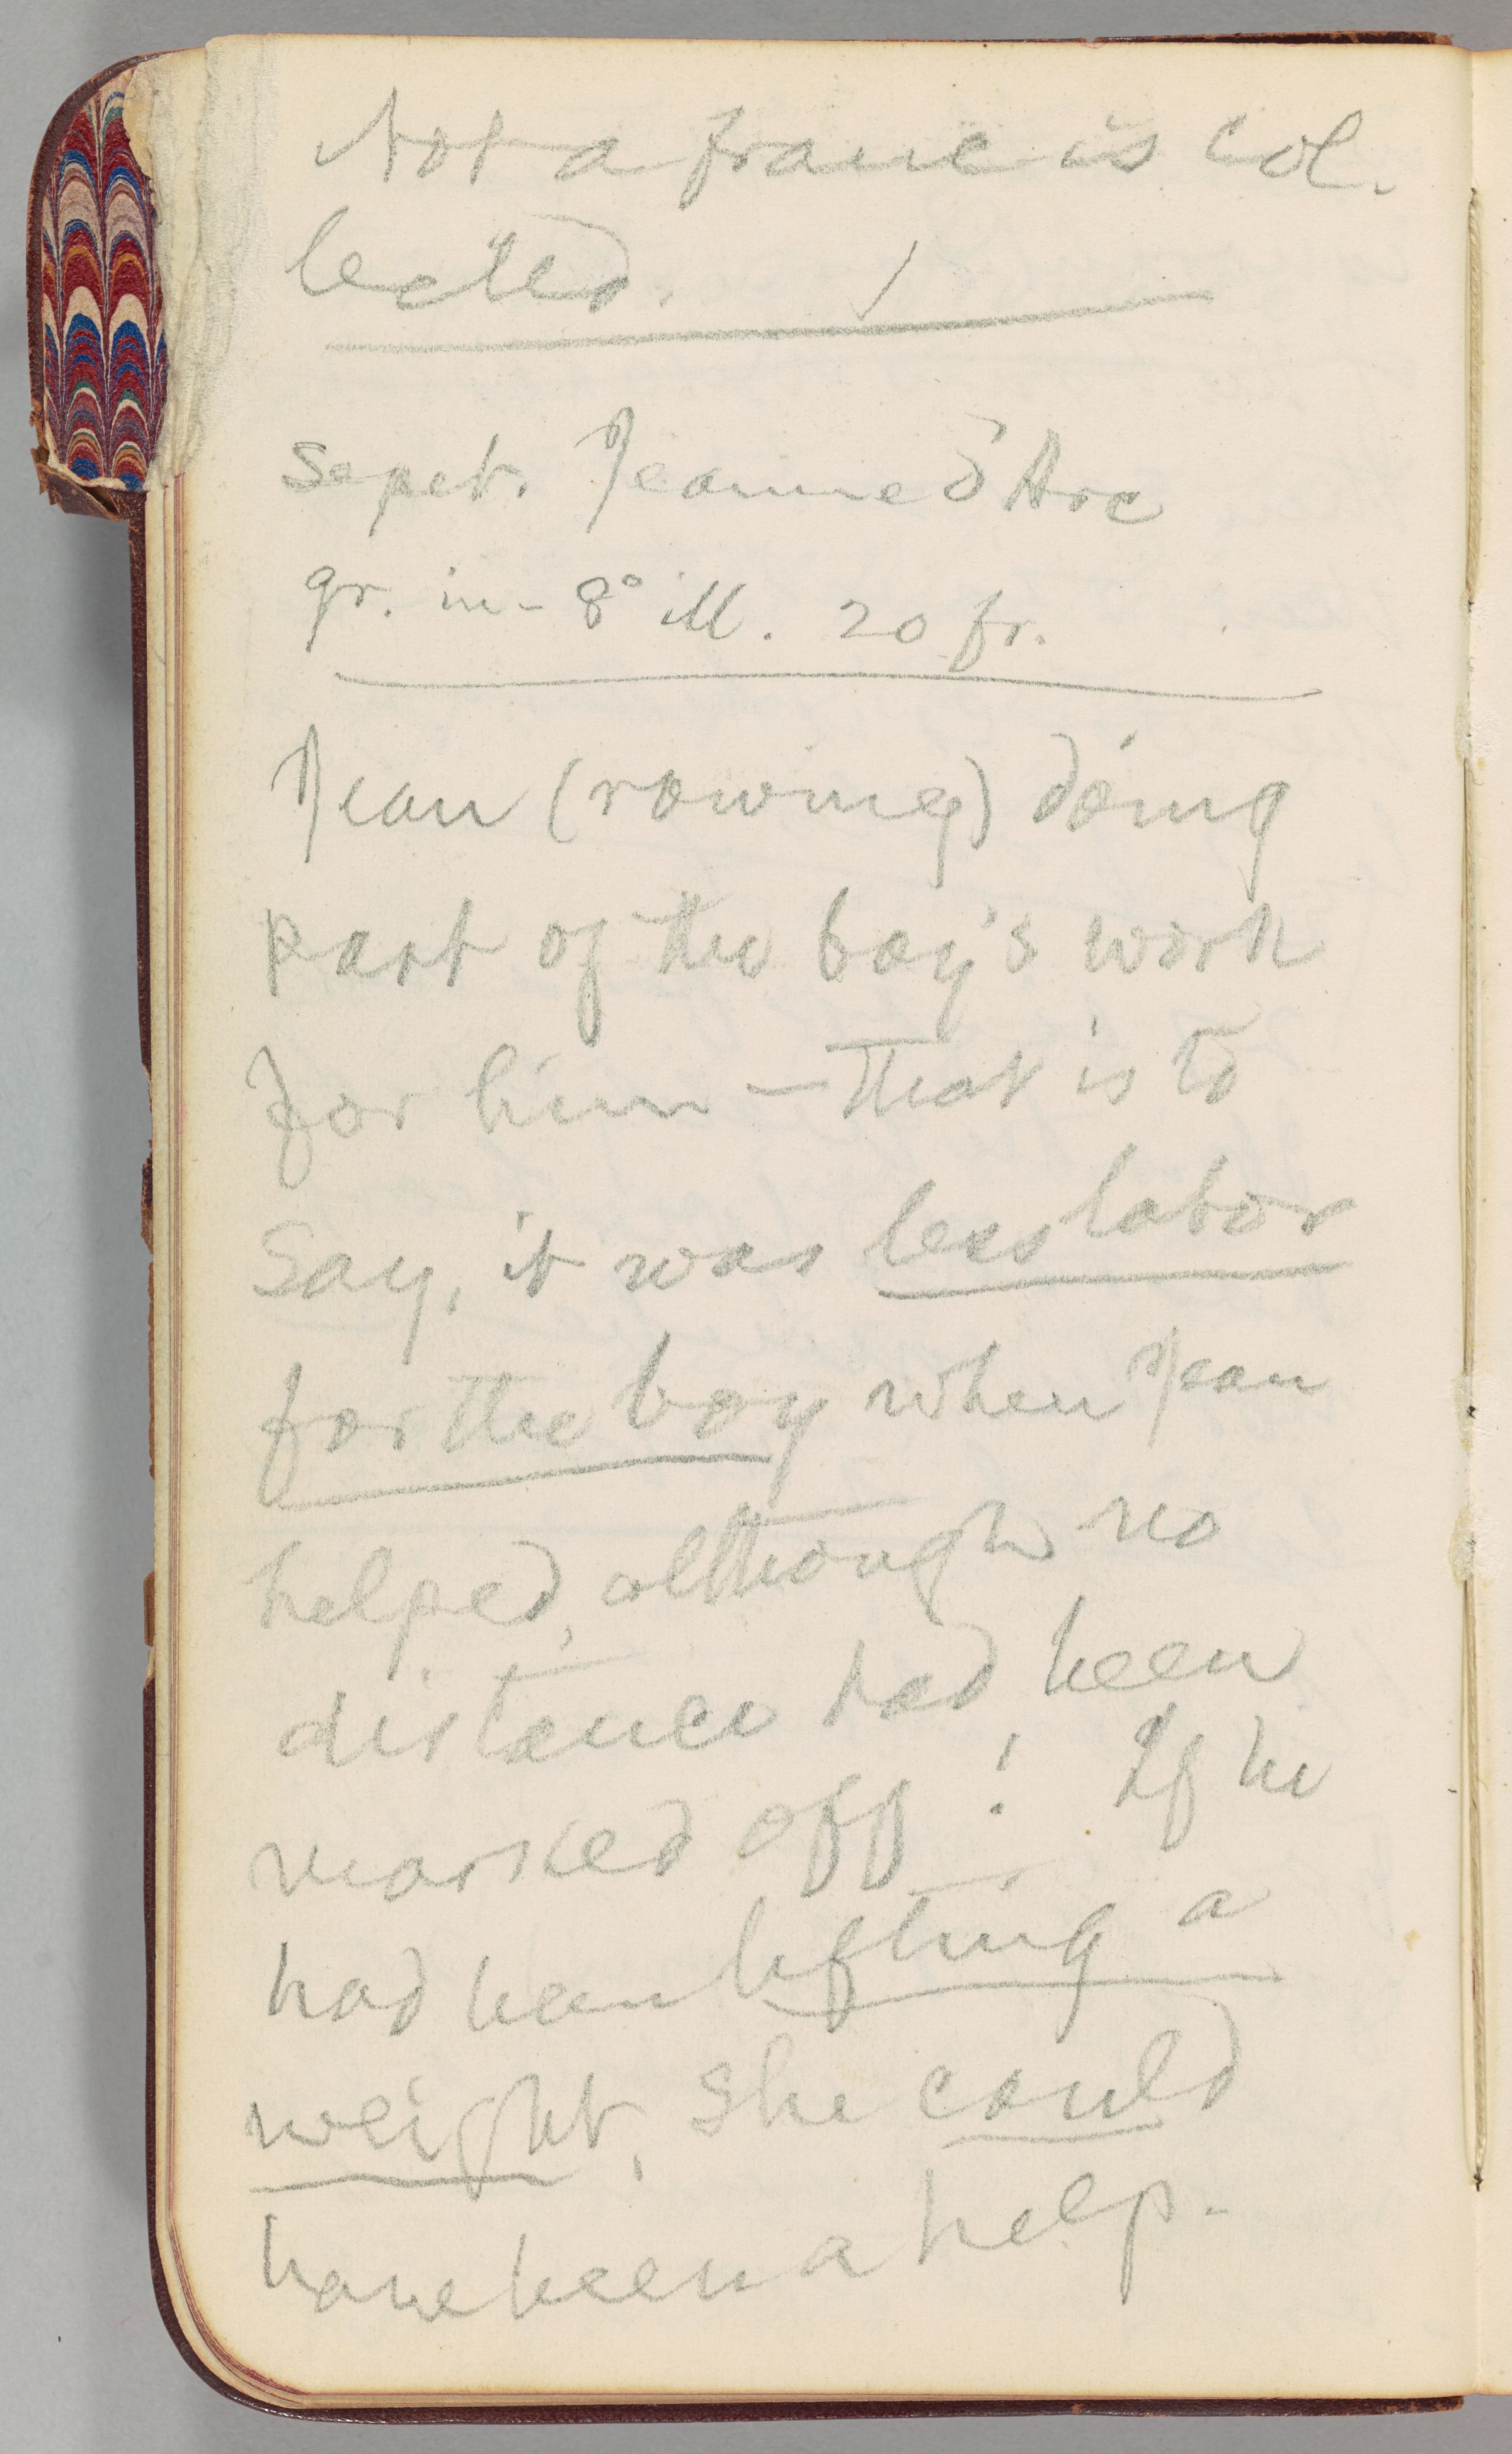 Not a franc is col-
lected.
Sepet. Jeanne d'Arc
gr. in-8° ill. 20 fr.
Jean (rowing) doing
part of the boy's work
for him — that is to
say, it was less labor
for the boy when Jean
helped, although no
distance had been
marked off! If he
had been lifting a
weight, she could
have been a help.